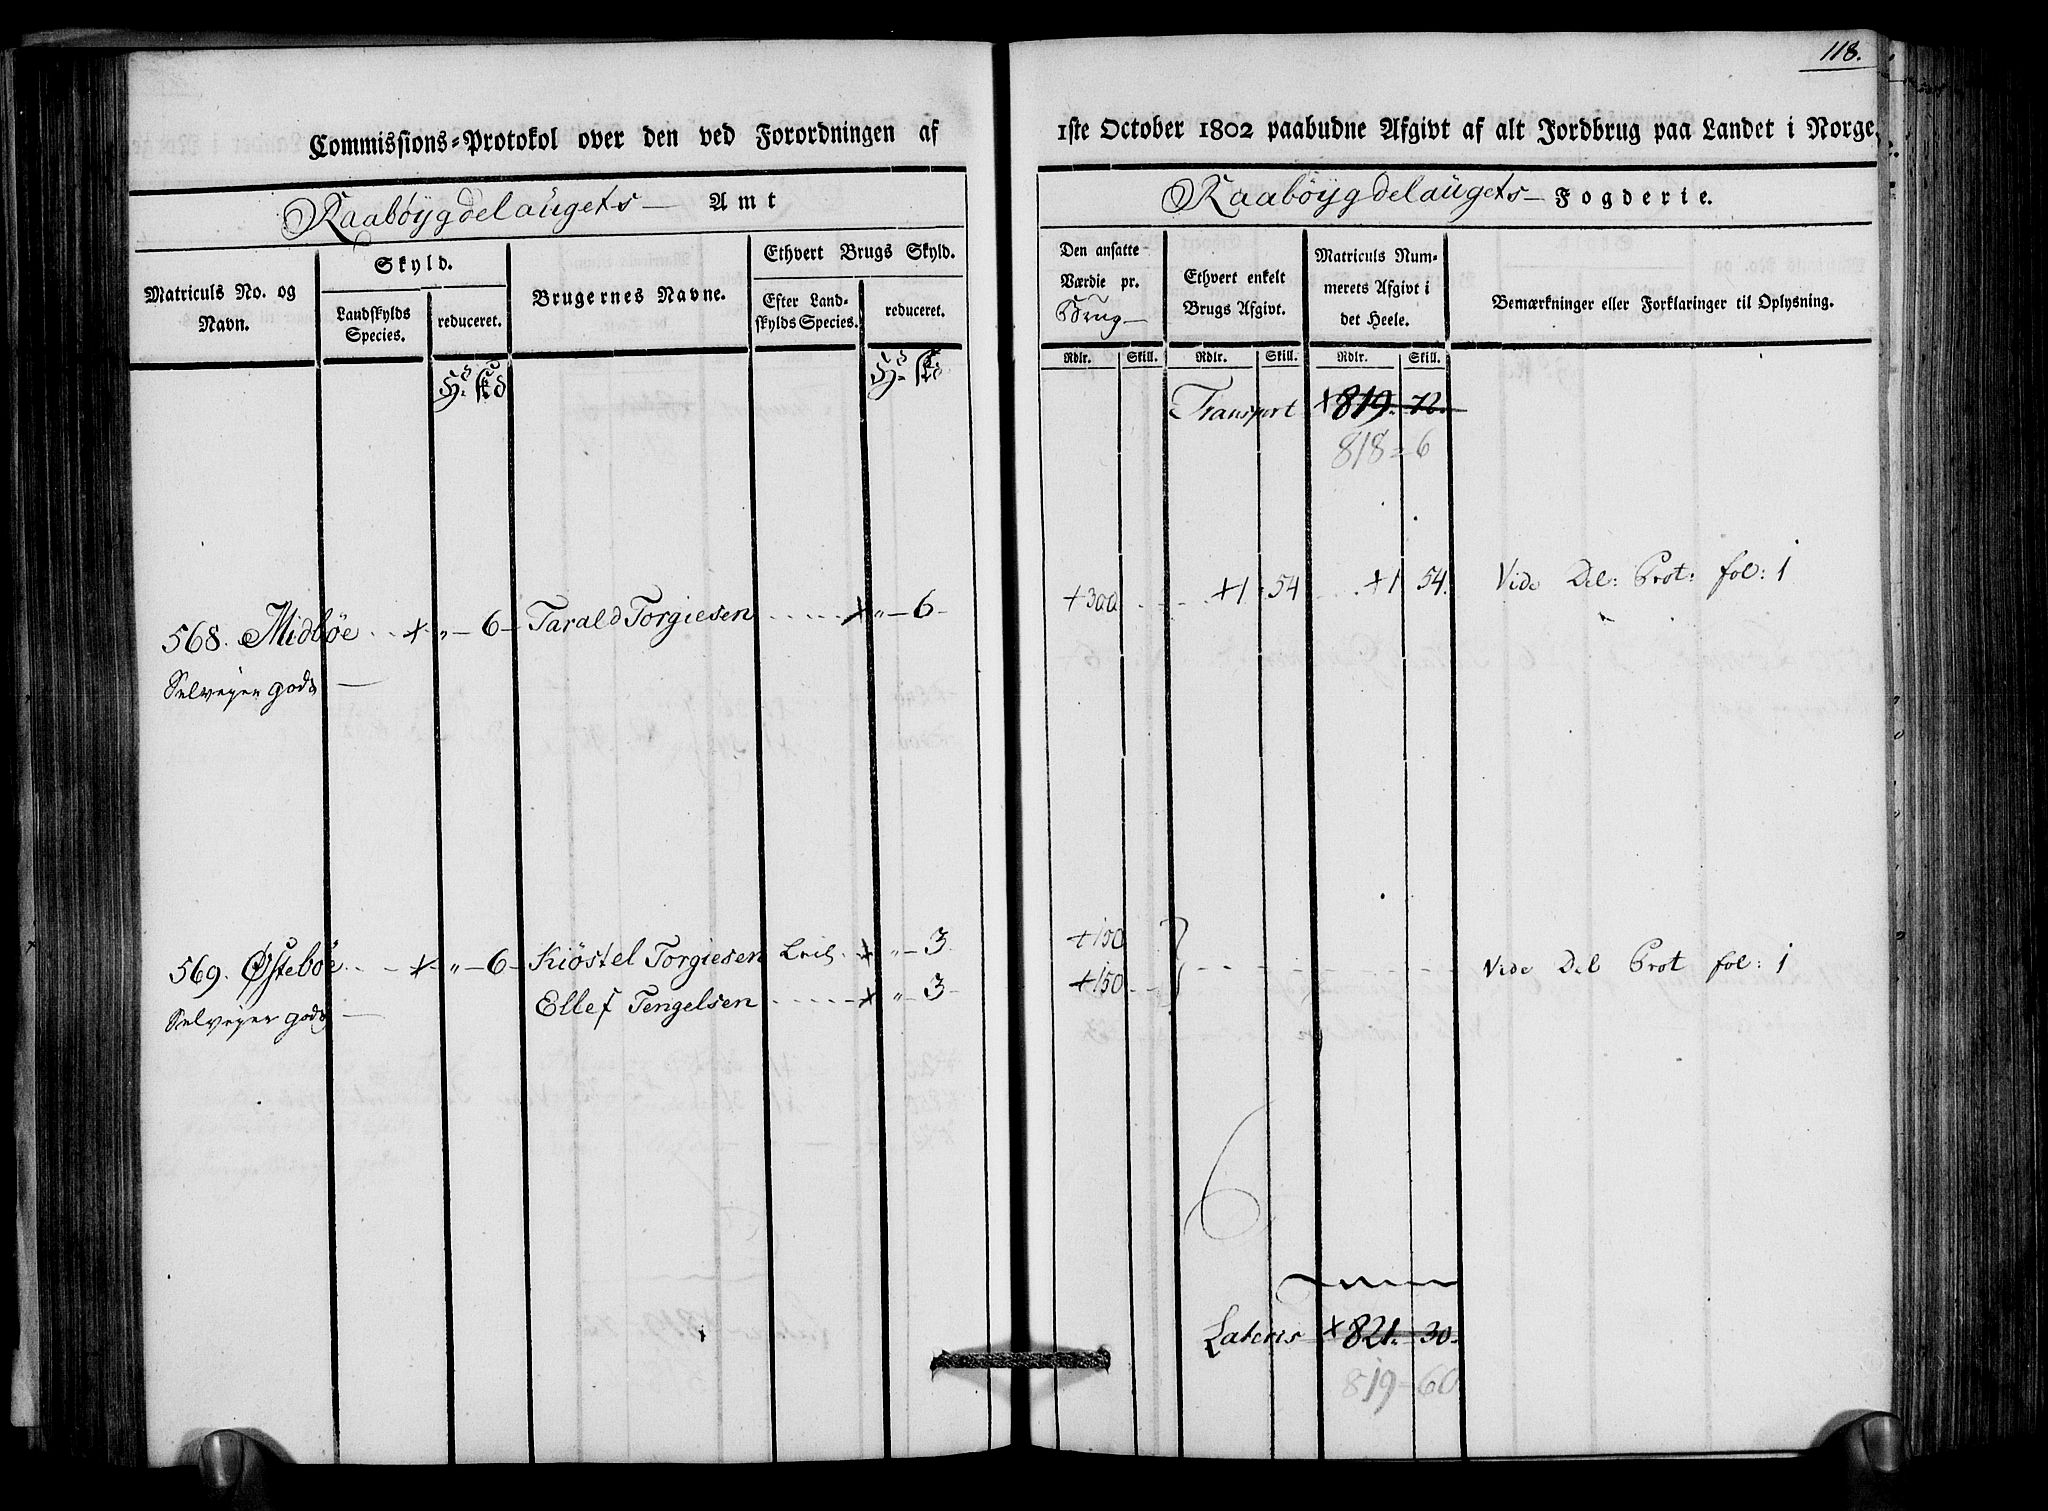 118.
Commissions-Protokol over den ved Forordningen af 1ste October 1802 paabudne Afgivt af alt Jordbrug paa Landet i Norge.
Raabøygdelaugets Amt
Raabøygdelaugets Fogderie.
Matriculs No. og Navn.
Skyld.
Landskylds Species.
reduceret.
Brugernes Navne.
Ethvert Brugs Skyld.
Efter Landskylds Species.
reduceret.
Den ansatte Værdie pr. Brug
Ethvert enkelt Brugs Afgivt.
Matriculs Nummerets Afgivt i det Heele.
Bemærkninger eller Forklaringer til Oplysning.
Rdlr. Skill. Rdlr. Skill. Rdlr. Skill.
Transport +819. 72.
818 = 6
568. Midbøe + „ - 6 - Tarald Torgiesen + „ - 6 - +300 +1 . 54 +1 54. Vide Del: Prot: fol: 1
Selveyer gods
569. Østebøe + „ - 6 - Kiöstel Torgiesen + „ - 3 +150 Vide Del Prot fol: 1
Ellef Tengelsen + „ - 3 - +150
Selveyer gods
Lateris +821. 30.
819 = 60